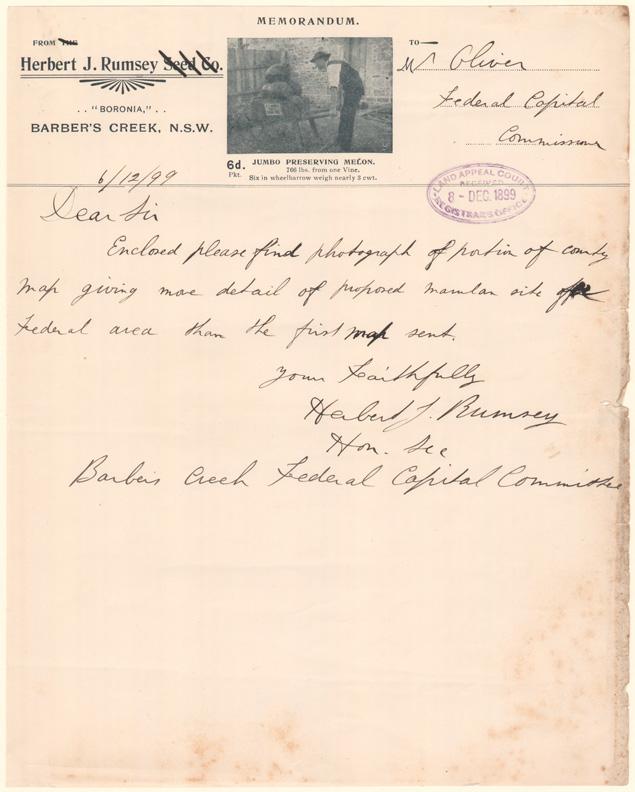 MEMORANDUM.
FROM THE
Herbert J. Rumsey Seed Co.
.. "BORONIA," ..
BARBER'S CREEK, N.S.W.
6d. JUMBO PRESERVING MELON.
Pkt. 766 lbs. from one Vine.
Six in wheelbarrow weigh nearly 3 cwt.
TO
Mr Oliver
Federal Capital
Commissioner
6/12/99
LAND APPEAL COURT
RECEIVED
8 - DEC. 1899
REGISTRAR'S OFFICE
Dear Sir
Enclosed please find photograph of portion of county
map giving more detail of proposed site
Federal area than the first map sent.
Yours Faithfully
Herbert J. Rumsey
Hon. Sec
Barbers Creek Federal Capital Committee